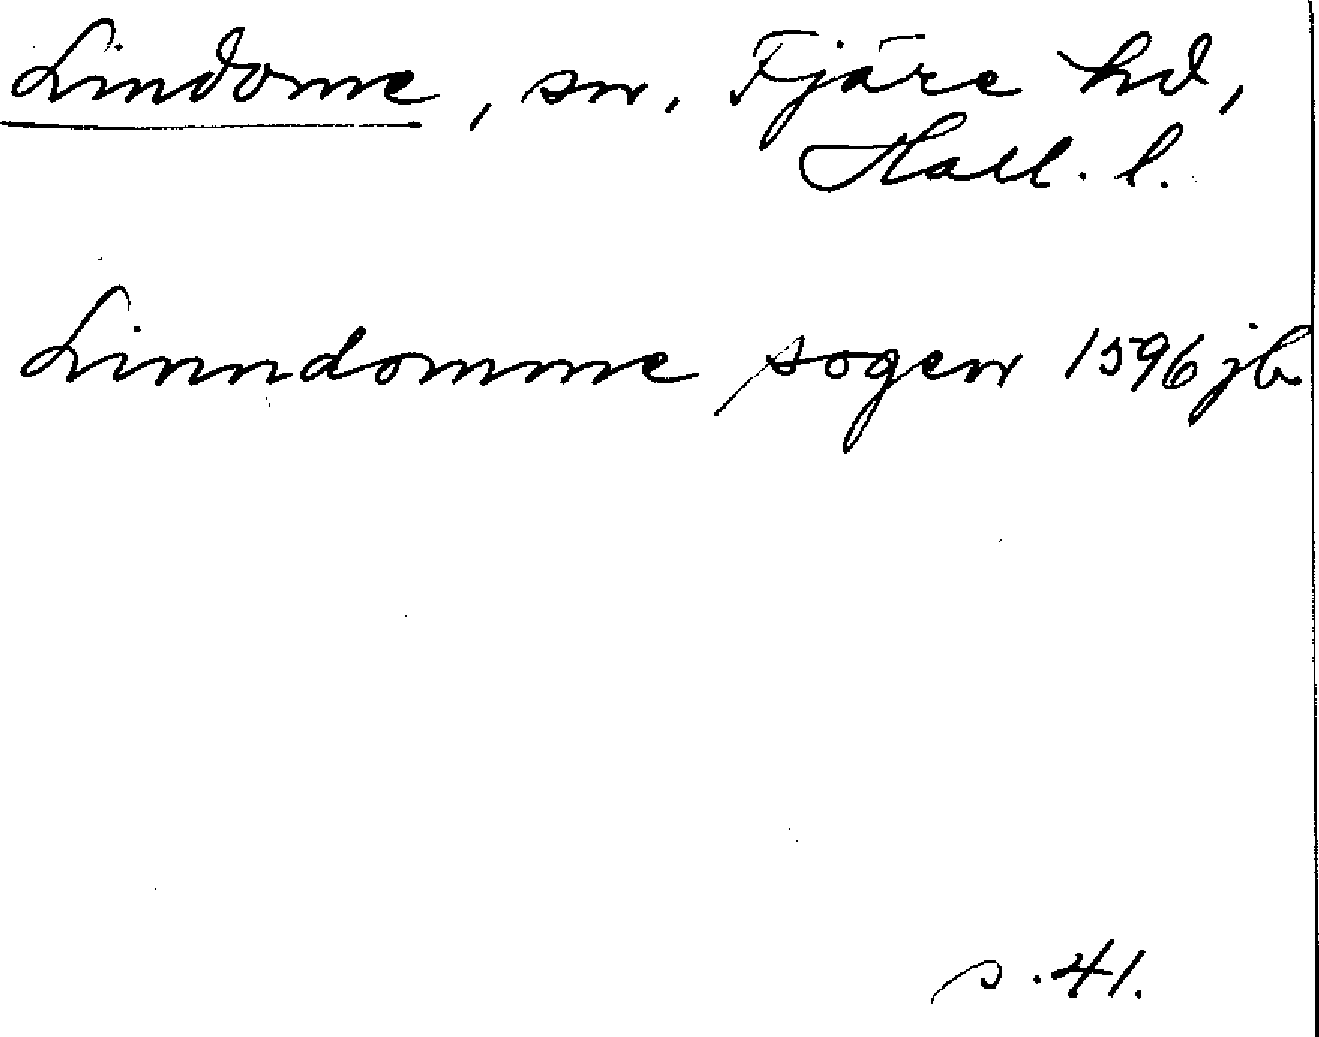 Lindome, sn, Fjäre hd,
Hall. l.
Linndomme sogen 1596 jb
s. 41.